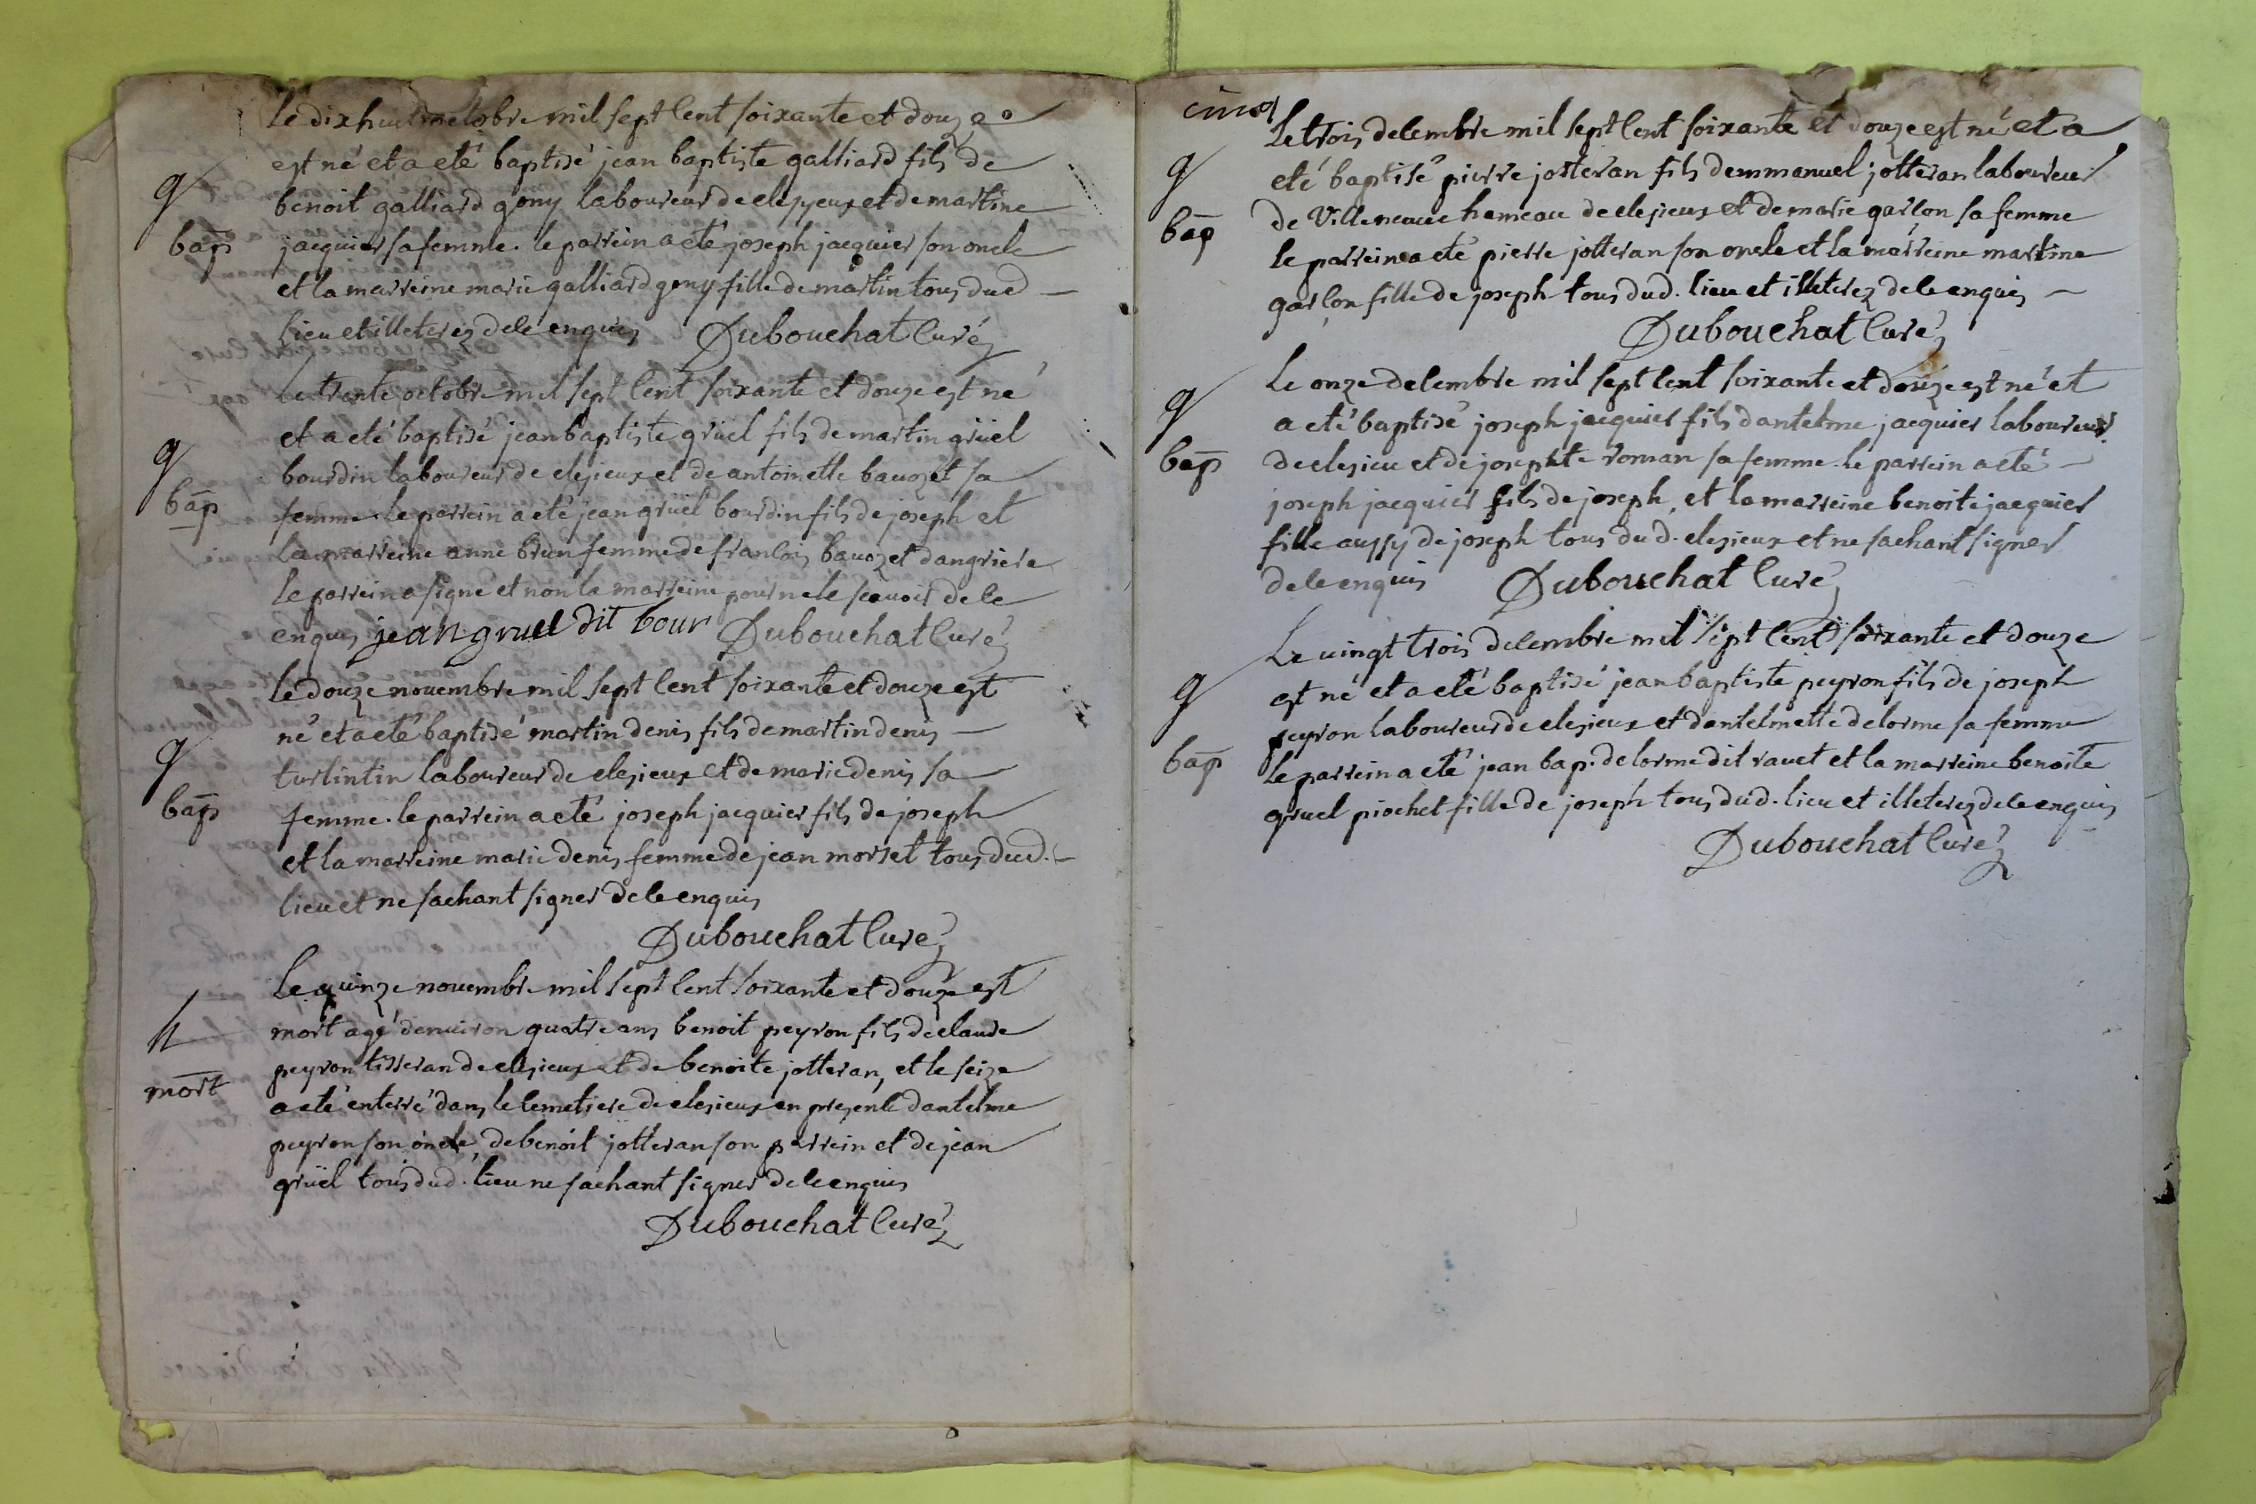 Le dixhuit octobre mil sept cent soixante et douze
est né et a eté baptisé jean baptiste galliard fils de
g
benoit galliard gony laboureur de clezieux et de martine
bap
jacquier sa femme. le parrein a eté joseph jacquier son oncle
et la marreine marie galliard gony fille de martin tous dud
lieu et illeterez de ce enquis Dubouchat Curé
Le trente octobre mil sept cent soixante et douze est né
et a eté baptisé jean baptiste grüel fils de martin grüel
g
bourdin laboureur de clezieux et de antoinette bauozet sa
bap
femme. le parrein a eté jean grüel bourdin fils de joseph et
la marreine anne brun femme de francois bauozet dangriere
le parrein a signé et non la marreine pour ne le scauoir de ce
enquis jean gruel dit bour Dubouchat Curé
Le douze nouembre mil sept cent soixante et douze est
né et a eté baptisé martin denis fils de martin denis
g
turlintin laboureur de clezieux et de marie denis sa
bap
femme. le parrein a eté joseph jacquier fils de joseph
et la marreine marie denis femme de jean morset tous dud.
lieu et ne sachant signer de ce enquis
Dubouchat Curé
Le quinze nouembre mil sept cent soixante et douze est
mort agé denuiron quatre ans benoit peyron fils de claude
peyron tisseran de clezieux et de benoite jotteran, et le seize
mort
a eté enterré dans le cemetiere de clezieux en presence dantelme
peyron son oncle, de benoit jotteran son parrein et de jean
grüel tous dud. lieu ne sachant signer de ce enquis
Dubouchat Curé
cinq
Le trois decembre mil sept cent soixante et douze est né et a
g
eté baptisé pierre jotteran fils demmanuel jotteran laboureur
bap
de Villeneuue hameau de clezieux et de marie garcon sa femme
le parrein a eté pierre jotteran son oncle et la marreine martine
garcon fille de joseph tous dud. lieu et illeterez de ce enquis
Dubouchat Curé
Le onze decembre mil sept cent soixante et douze est né et
g
a eté baptisé joseph jacquier fils dantelme jacquier laboureur
bap
de clezieu et de josephte roman sa femme. le parrein a eté
joseph jacquier fils de joseph, et la marreine benoite jacquier
fille aussy de joseph tous dud. clezieux et ne sachant signer
de ce enquis Dubouchat Curé
Le uingt trois decembre mil sept cent soixante et douze
g
est né et a eté baptisé jean baptiste peyron fils de joseph
peyron laboureur de clezieux et dantelmette delorme sa femme
bap
le parrein a eté jean bap. delorme dit rauet et la marreine benoite
gruel piochet fille de joseph tous dud. lieu et illeterez de ce enquis
Dubouchat Curé